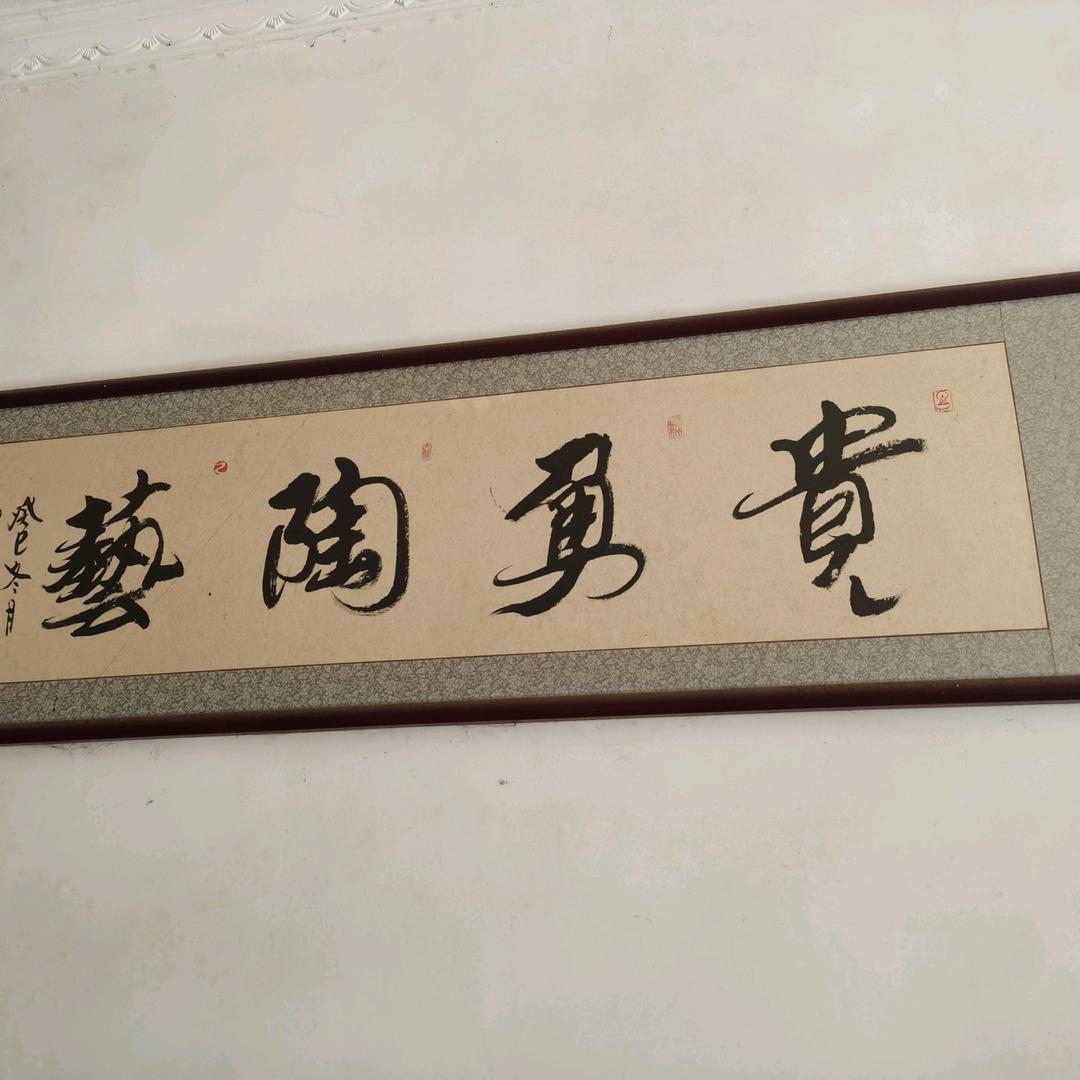 貴勇陶藝
癸巳冬月